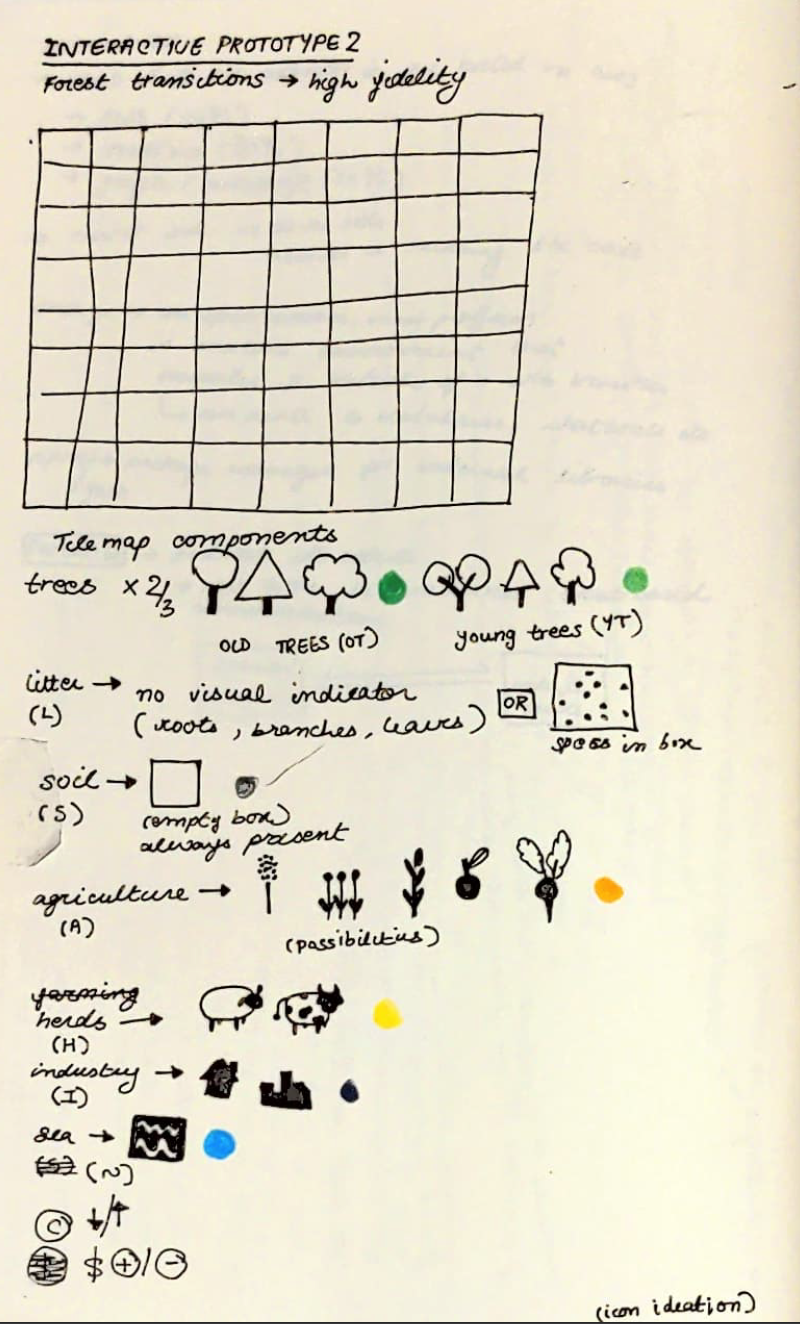 INTERACTIVE PROTOTYPE 2
Forest transitions → high fidelity
Tile map components
trees × 2/3
OLD TREES (OT)
young trees (YT)
litter → no visual indicator
(L) (roots, branches, leaves)
OR
specs in box
soil →
(S) (empty box)
always present
agriculture →
(A)
(possibilities)
farming
herds →
(H)
industry →
(I)
sea →
(S) (~)
© ↓/↑
$ $ ⊕/⊖
(icon ideation)